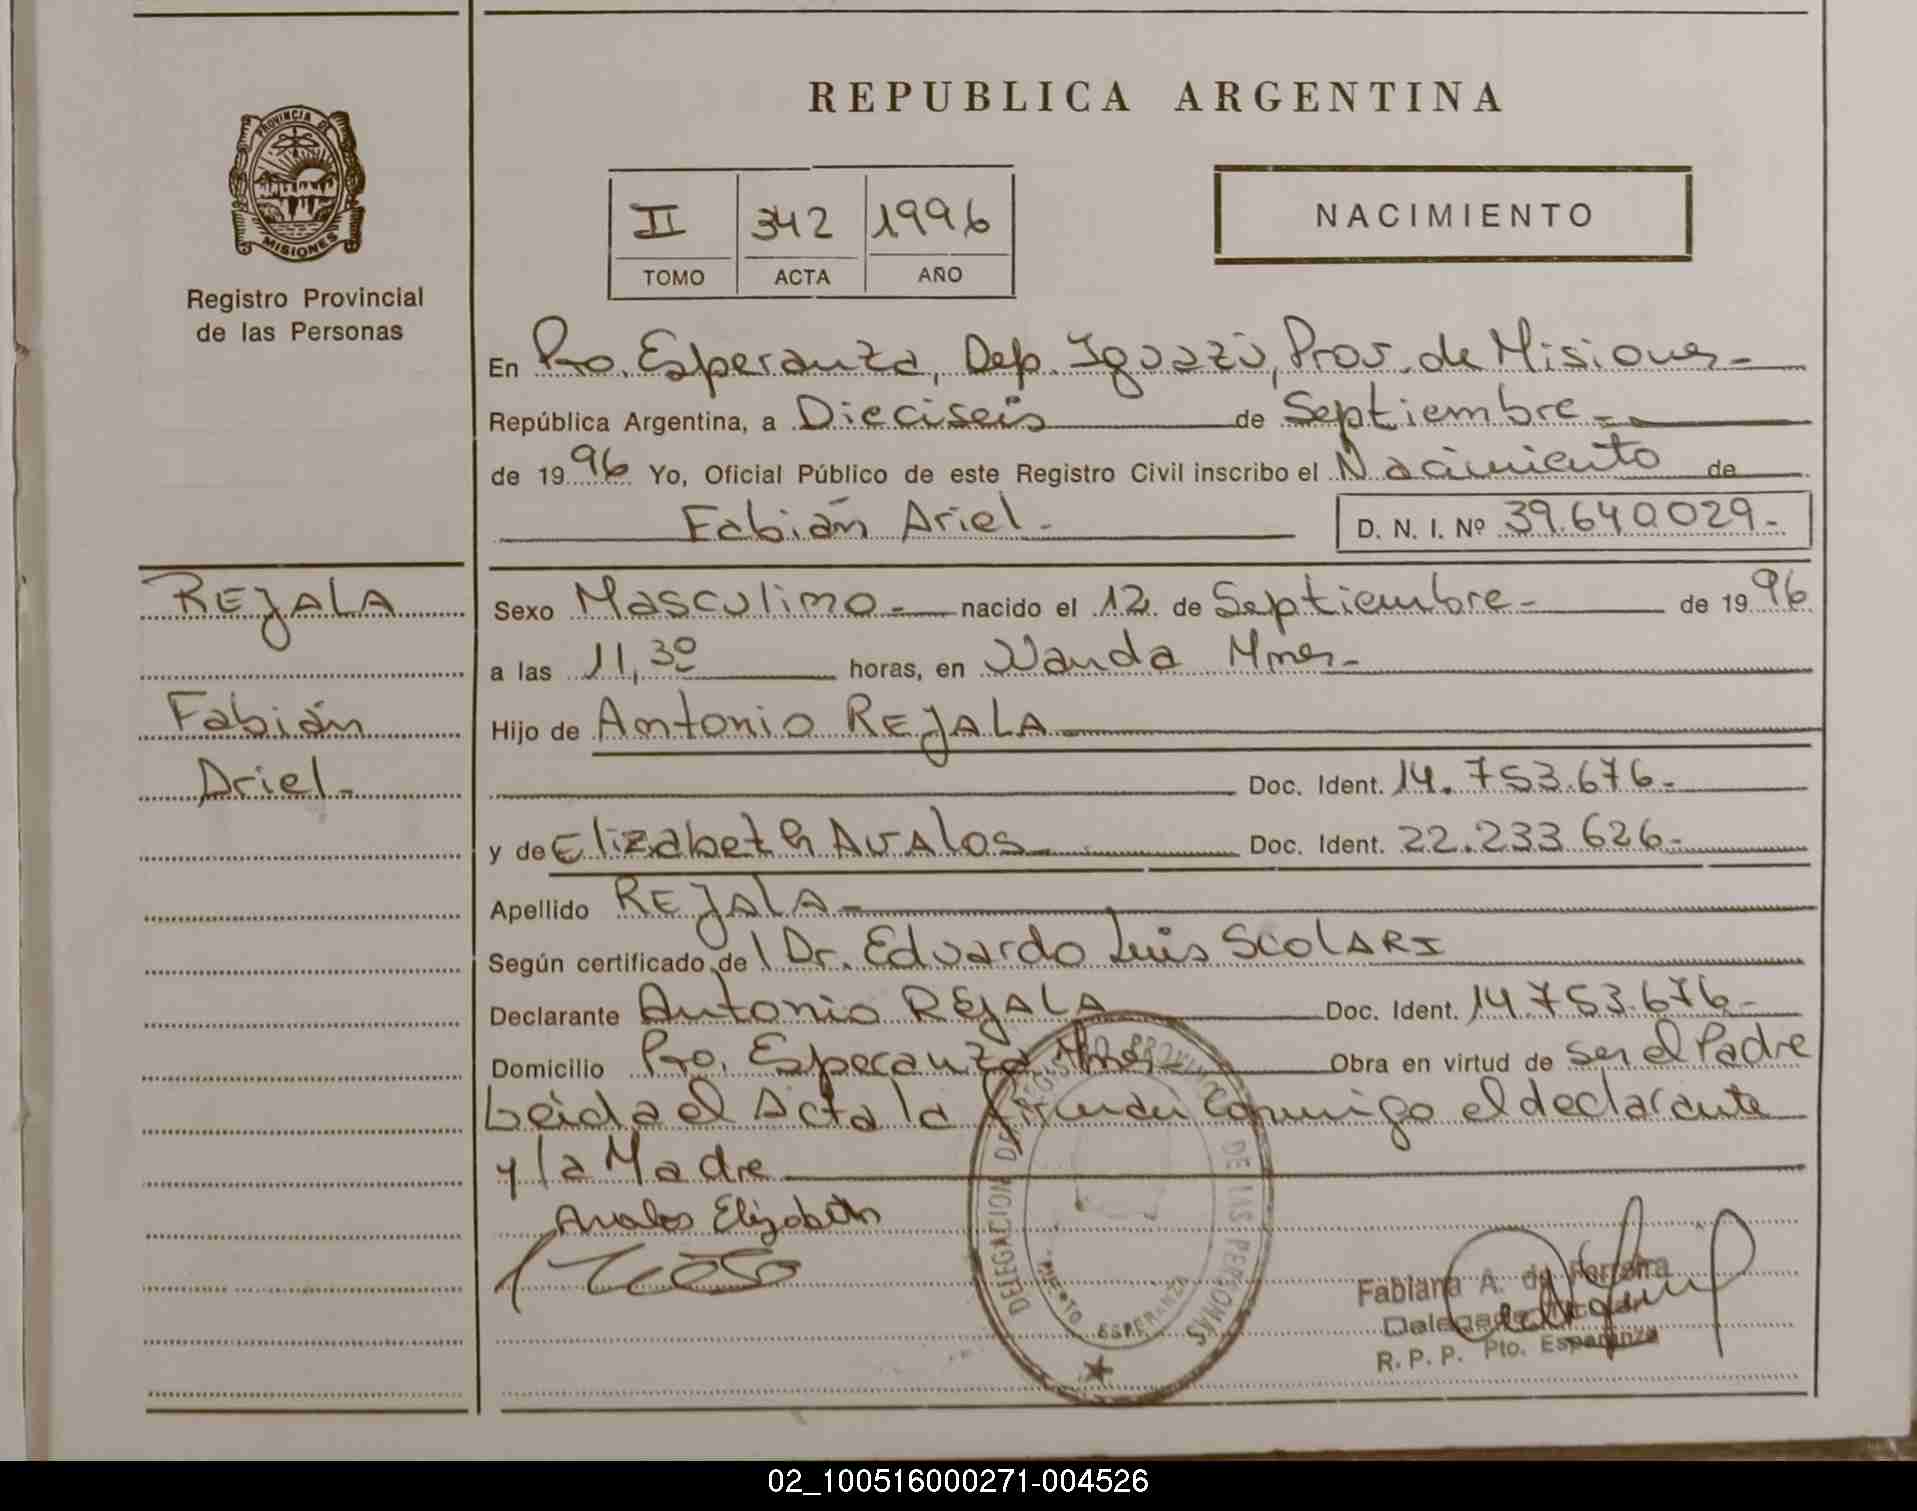 REPUBLICA ARGENTINA
PROVINCIA DE
MISIONES
Registro Provincial
de las Personas
II 342 1996
TOMO ACTA AÑO
NACIMIENTO
En Pto. Esperanza, Dep. Iguazú, Prov. de Misiones-
República Argentina, a Dieciseis de Septiembre-
de 1996 Yo, Oficial Público de este Registro Civil inscribo el Nacimiento de
Fabián Ariel- D. N. I. Nº 39.640.029-
REJALA
Fabián
Ariel-
Sexo Masculino- nacido el 12 de Septiembre- de 1996
a las 11,30 horas, en Wanda Mnes-
Hijo de Antonio REJALA
Doc. Ident. 14.753.676-
y de Elizabeth AvAlos Doc. Ident. 22.233.626-
Apellido REJALA-
Según certificado de l Dr. Eduardo Luis SCOLARI
Declarante Antonio REJALA Doc. Ident. 14.753.676-
Domicilio Pto. Esperanza Mnes- Obra en virtud de ser el Padre
Leida el Acta la firman conmigo el declarante
y la Madre
Avalos Elizabeth
DELEGACION DEL REGISTRO PROVINCIAL DE LAS PERSONAS
PUERTO ESPERANZA
Fabiana A. de Ferreira
Delegada Titular
R. P. P. Pto. Esperanza
02_100516000271-004526